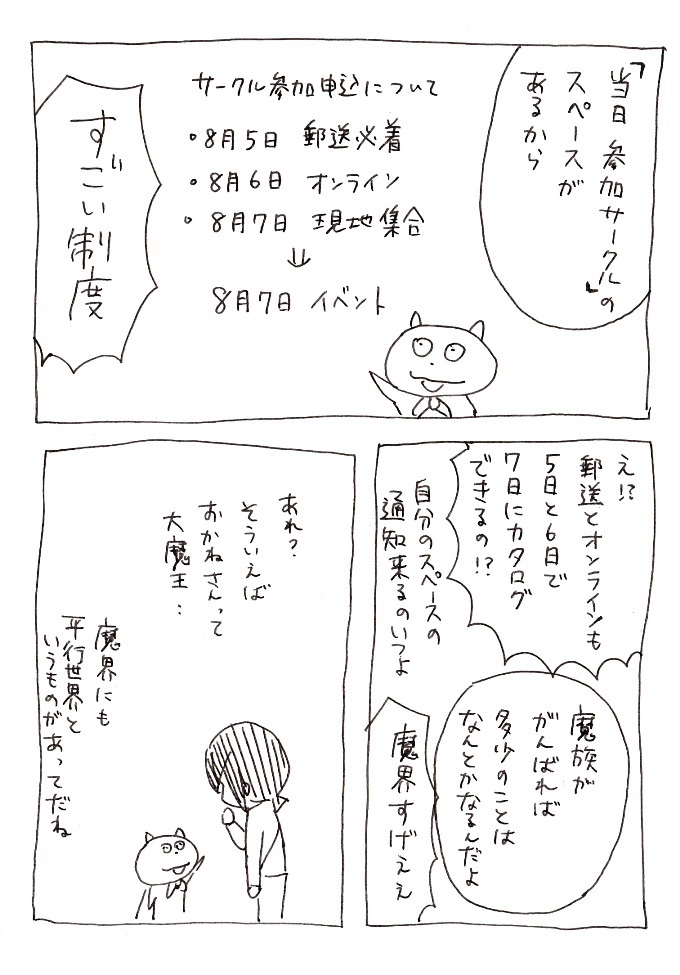 「当日参加サークル」の
スペースが
あるから
サークル参加申込について
・8月5日 郵送必着
・8月6日 オンライン
・8月7日 現地集合
⇓
8月7日 イベント
すごい制度
え!?
郵送とオンラインも
5日と6日で
7日にカタログ
できるの!?
自分のスペースの
通知来るのいつよ
魔族が
がんばれば
多少のことは
なんとかなるんだよ
魔界すげぇぇ
あれ?
そういえば
おかねさんって
大魔王…
魔界にも
平行世界と
いうものがあってだね